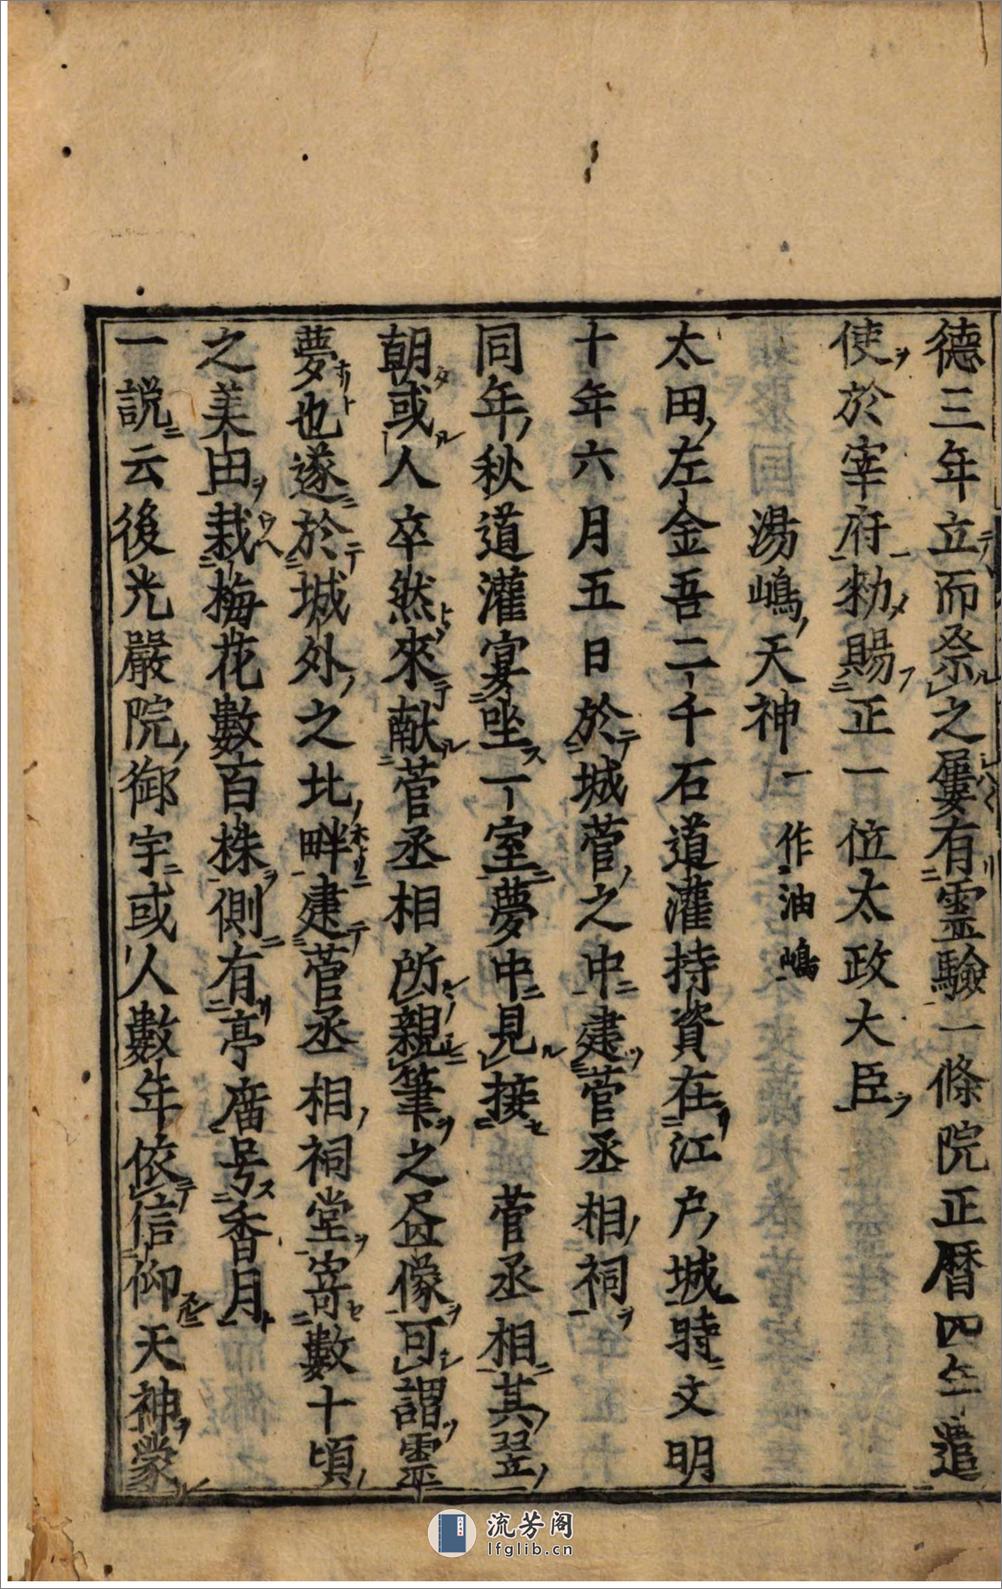 德三年立而祭之屢有霊驗一條院正曆四年遣
使於宰府勑賜正一位太政大臣
湯嶋天神 一作油嶋
太田左金吾二千石道灌持資在江戸城時文明
十年六月五日於城菅之中建菅丞相祠
同年秋道灌宴坐一室夢中見接 菅丞相其翌
朝或人卒然來献菅丞相所親筆之畫像可謂霊
夢也遂於城外之北畔建菅丞相祠堂寄數十頃
之美田栽梅花數百株側有亭㢝号香月
一説云後光嚴院御宇或人數年依信仰天神蒙
流芳阁
lfglib.cn